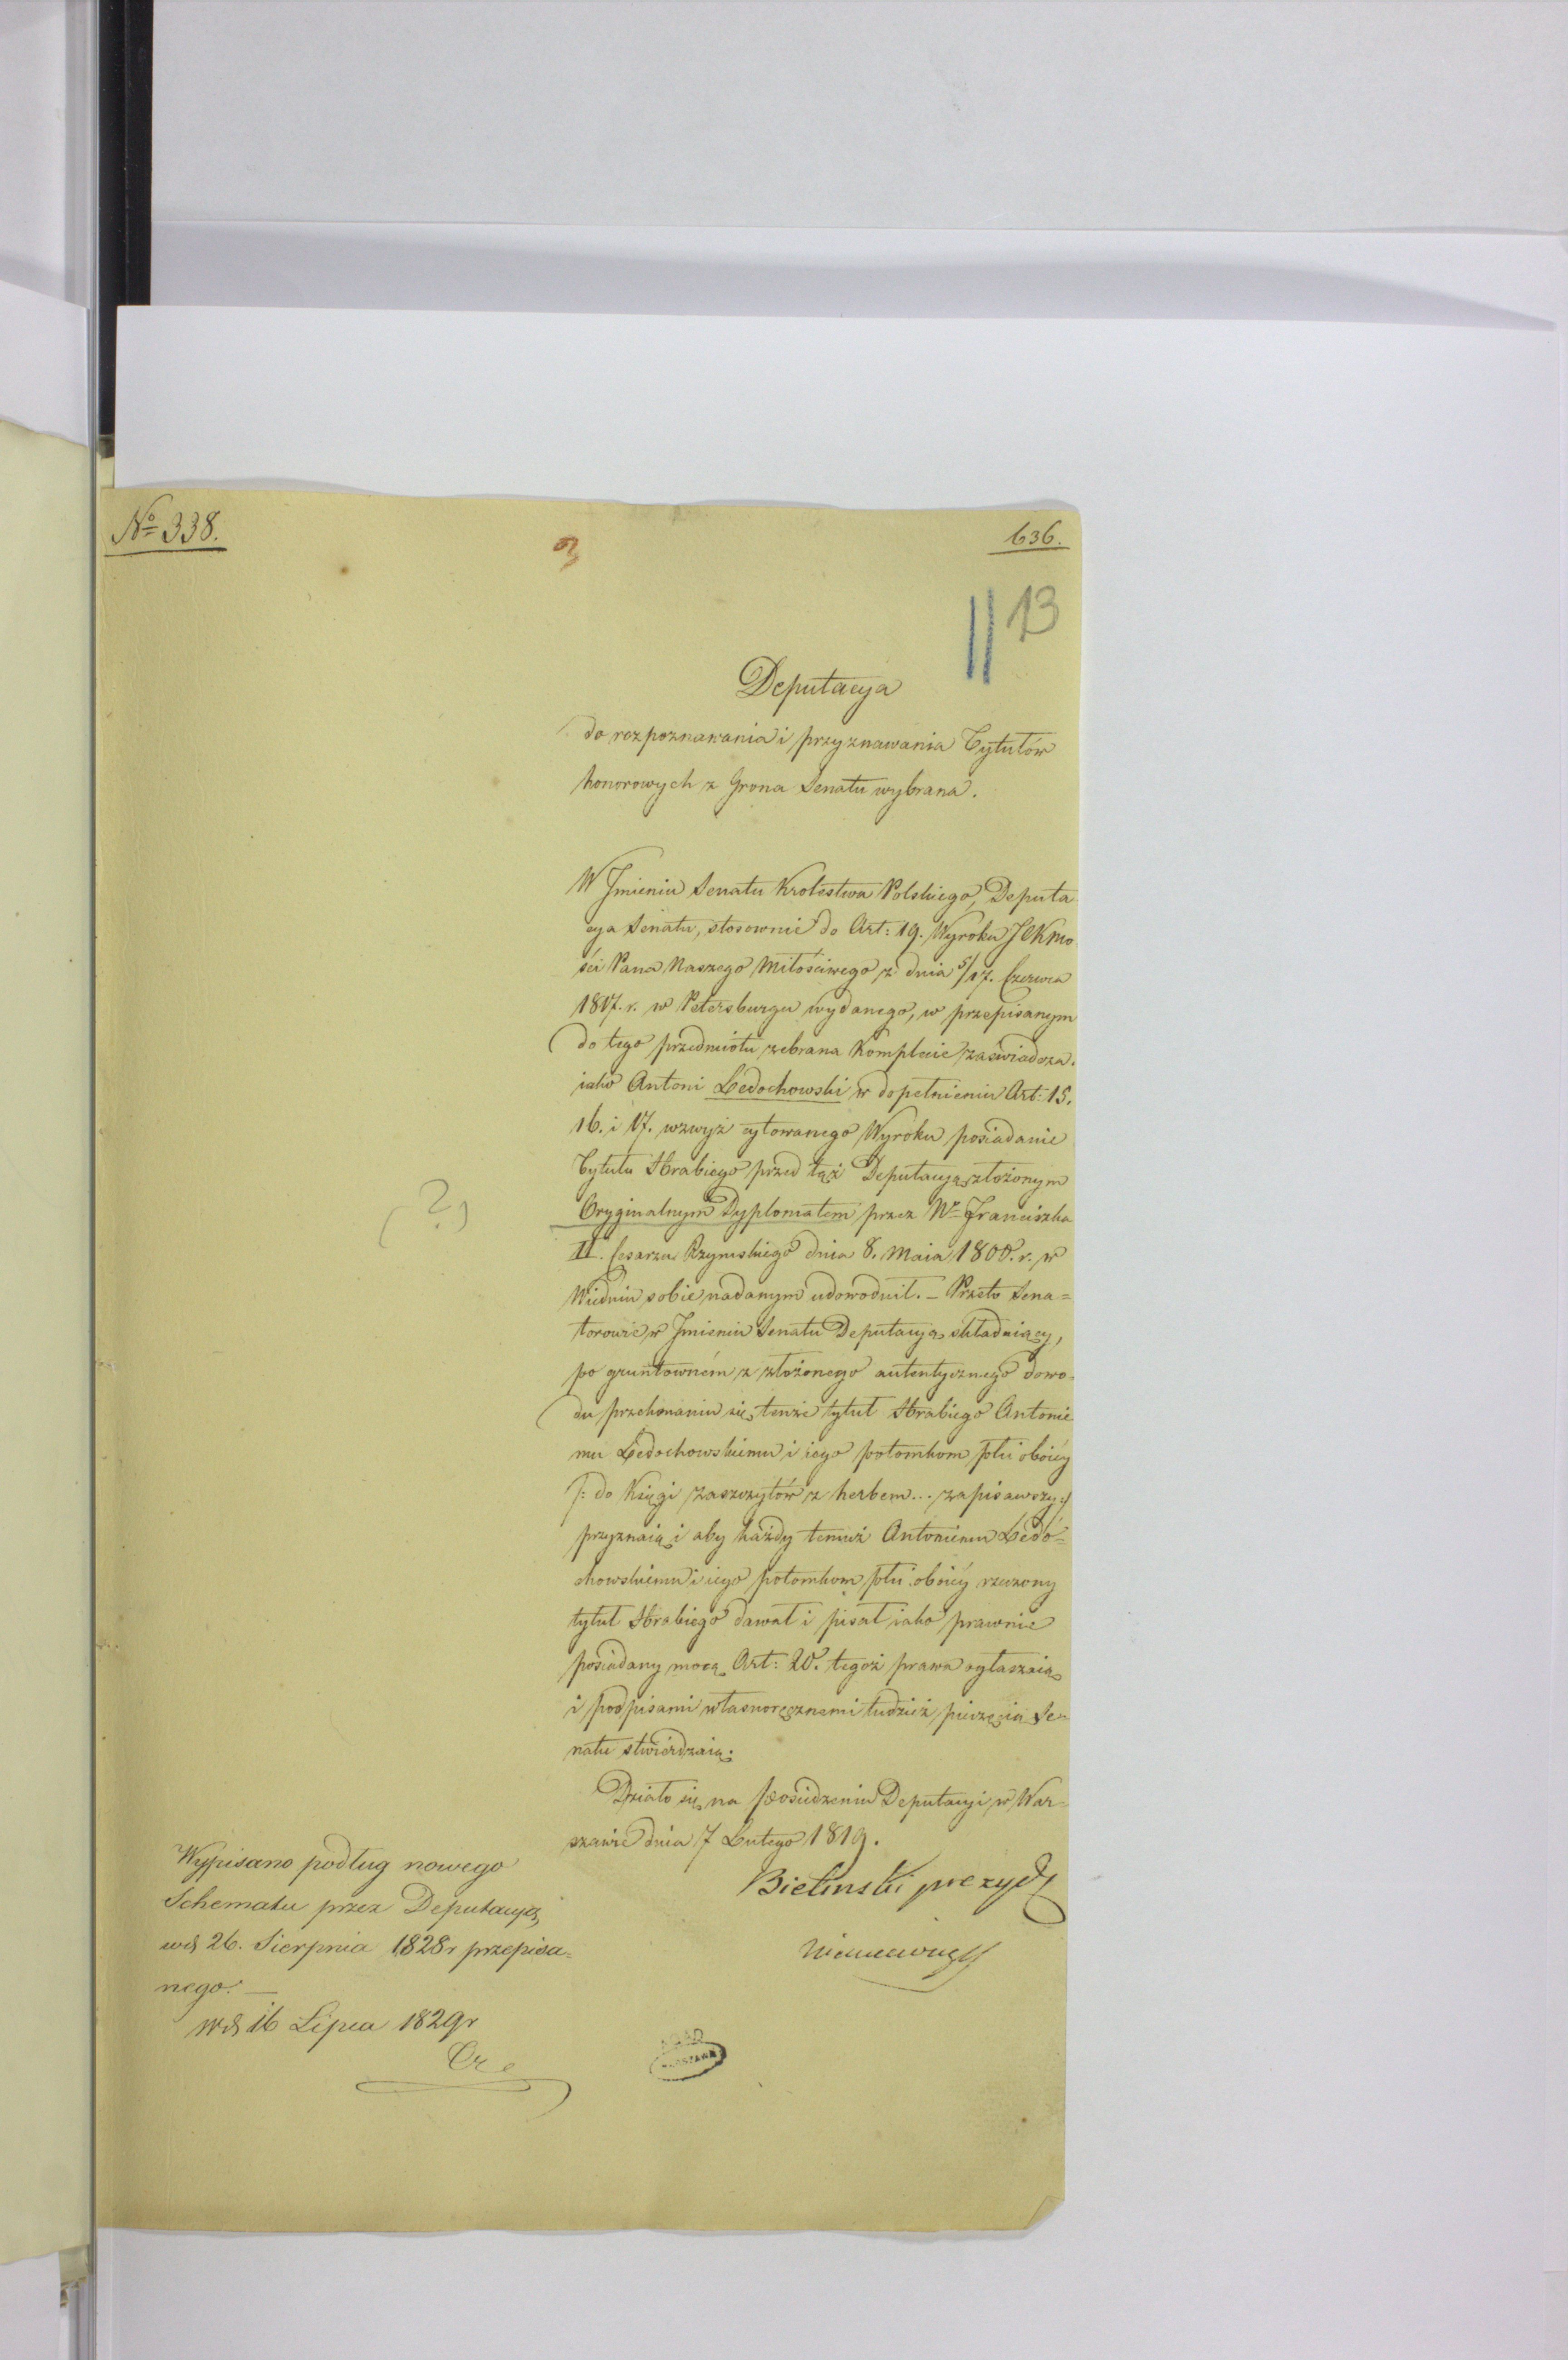 No 338.
636.
13
Deputacya
do rozpoznawania i przyznawania Tytułów
honorowych z Grona Senatu wybrana.
W Jmieniu Senatu Krolestwa Polskiego, Deputa
cya Senatu, stosownie do Art: 19. Wyroku JCKMo
ści Pana Naszego Miłościwego z dnia 5/17. Czerwca
1817. r. w Petersburgu wydanego, w przepisanym
do tego przedmiotu zebrana Komplecie zaświadcza.
iako Antoni Ledochowski w dopełnieniu Art: 15.
16. i 17. wzwyż cytowanego Wyroku posiadanie
Tytułu Hrabiego przed tąż Deputacyą złożonym
Oryginalnym Dyplomatem przez Wo Franciszka
II. Cesarza Rzymskiego dnia 8. Maia 1800. r. w
Wiedniu sobie nadanym udowodnił. – Przeto Sena=
torowie w Jmieniu Senatu Deputacyą składaiący,
po gruntowném z złożonego autentycznego dowo=
du przekonaniu się, tenże tytuł Hrabiego Antonie
mu Ledochowskiemu i iego potomkom płci oboiéy
/: do Księgi zaszczytów z herbem... zapisawszy :/
przyznaią i aby każdy temuż Antoniemu Ledo=
chowskiemu i iego potomkom płci oboiéy rzeczony
tytuł Hrabiego dawał i pisał iako prawnie
posiadany mocą Art: 20. tegoż prawa ogłaszaią
i podpisami własnoręcznemi tudzież pieczęcią Se=
natu stwierdzaią.
Działo się na Posiedzeniu Deputacyi w War=
szawie dnia 7 Lutego 1819.
Bielinski prezyd
Niemcewicz
(?)
Wypisano podług nowego
Schematu przez Deputacyą
w d 26. Sierpnia 1828 r przepisa=
nego. –
w d 16 Lipca 1829 r
AGAD
WARSZAWA